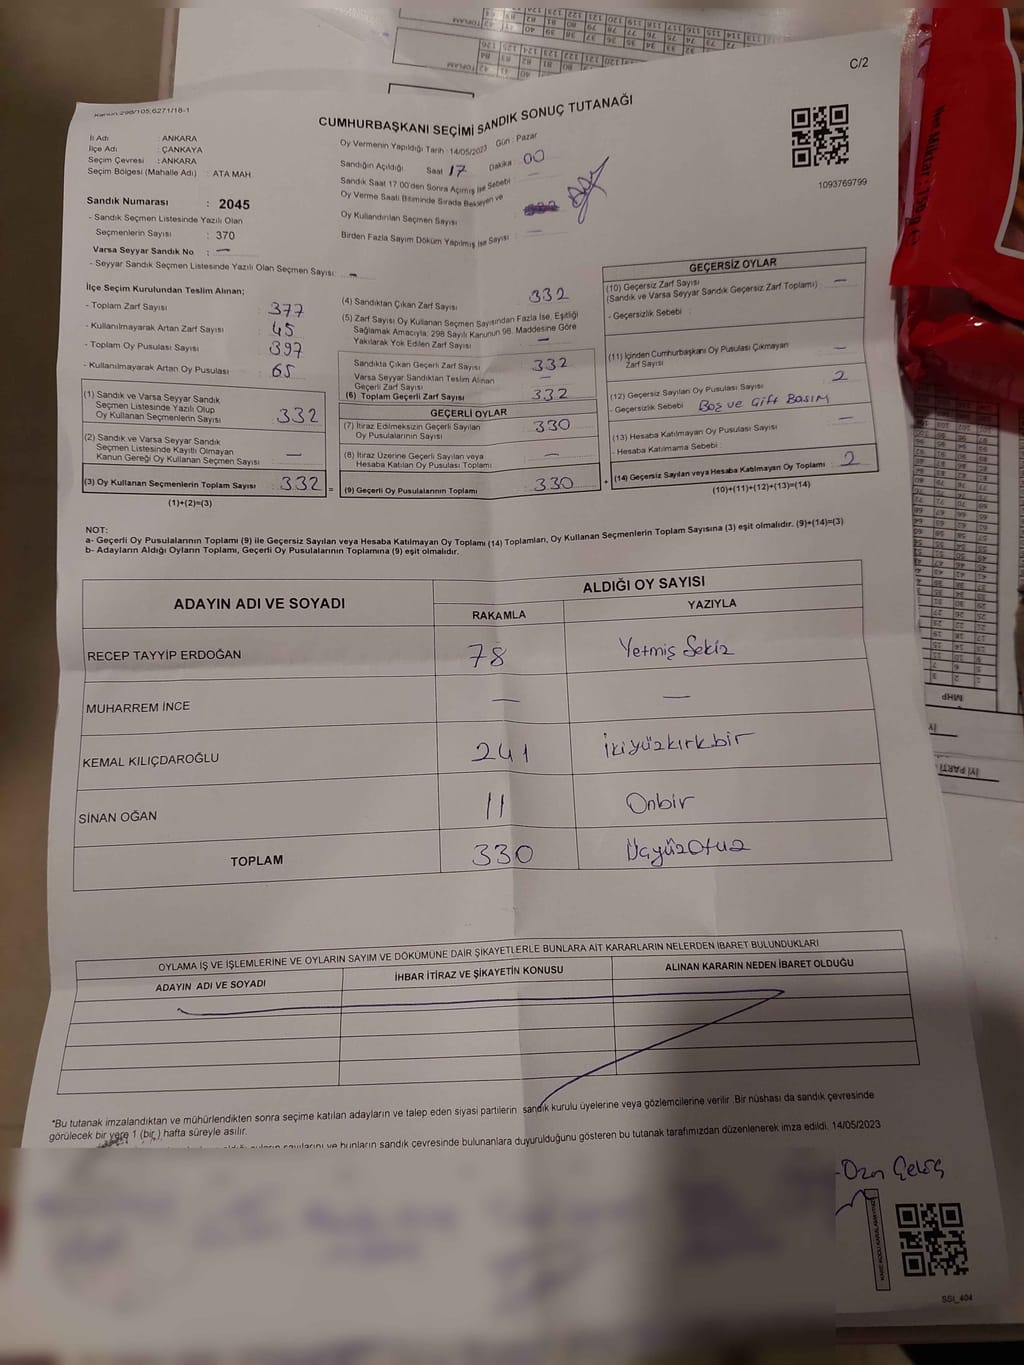 C/2
Kanun:298/105;6271/18-1
CUMHURBAŞKANI SEÇİMİ SANDIK SONUÇ TUTANAĞI
1093769799
İl Adı : ANKARA
İlçe Adı : ÇANKAYA
Seçim Çevresi : ANKARA
Seçim Bölgesi (Mahalle Adı) : ATA MAH.
Sandık Numarası : 2045
- Sandık Seçmen Listesinde Yazılı Olan
Seçmenlerin Sayısı : 370
Varsa Seyyar Sandık No : —
- Seyyar Sandık Seçmen Listesinde Yazılı Olan Seçmen Sayısı: —
Oy Vermenin Yapıldığı Tarih : 14/05/2023 Gün : Pazar
Sandığın Açıldığı Saat 17 Dakika : 00
Sandık Saat 17:00'den Sonra Açılmış İse Sebebi : —
Oy Verme Saati Bitiminde Sırada Bekleyen ve
Oy Kullandırılan Seçmen Sayısı :
Birden Fazla Sayım Döküm Yapılmış İse Sayısı : —
İlçe Seçim Kurulundan Teslim Alınan;
- Toplam Zarf Sayısı : 377
- Kullanılmayarak Artan Zarf Sayısı : 45
- Toplam Oy Pusulası Sayısı : 397
- Kullanılmayarak Artan Oy Pusulası : 65
(1) Sandık ve Varsa Seyyar Sandık
Seçmen Listesinde Yazılı Olup
Oy Kullanan Seçmenlerin Sayısı : 332
(2) Sandık ve Varsa Seyyar Sandık
Seçmen Listesinde Kayıtlı Olmayan
Kanun Gereği Oy Kullanan Seçmen Sayısı : —
(3) Oy Kullanan Seçmenlerin Toplam Sayısı : 332 =
(1)+(2)=(3)
(4) Sandıktan Çıkan Zarf Sayısı : 332
(5) Zarf Sayısı Oy Kullanan Seçmen Sayısından Fazla İse, Eşitliği
Sağlamak Amacıyla; 298 Sayılı Kanunun 98. Maddesine Göre
Yakılarak Yok Edilen Zarf Sayısı : —
Sandıkta Çıkan Geçerli Zarf Sayısı : 332
Varsa Seyyar Sandıktan Teslim Alınan
Geçerli Zarf Sayısı : —
(6) Toplam Geçerli Zarf Sayısı : 332
GEÇERLİ OYLAR
(7) İtiraz Edilmeksizin Geçerli Sayılan
Oy Pusulalarının Sayısı : 330
(8) İtiraz Üzerine Geçerli Sayılan veya
Hesaba Katılan Oy Pusulası Toplamı : —
(9) Geçerli Oy Pusulalarının Toplamı : 330 +
GEÇERSİZ OYLAR
(10) Geçersiz Zarf Sayısı
(Sandık ve Varsa Seyyar Sandık Geçersiz Zarf Toplamı) : —
- Geçersizlik Sebebi :
(11) İçinden Cumhurbaşkanı Oy Pusulası Çıkmayan
Zarf Sayısı : —
(12) Geçersiz Sayılan Oy Pusulası Sayısı : 2
- Geçersizlik Sebebi : Boş ve Gift Basım
(13) Hesaba Katılmayan Oy Pusulası Sayısı : —
- Hesaba Katılmama Sebebi :
(14) Geçersiz Sayılan veya Hesaba Katılmayan Oy Toplamı : 2
(10)+(11)+(12)+(13)=(14)
NOT:
a- Geçerli Oy Pusulalarının Toplamı (9) ile Geçersiz Sayılan veya Hesaba Katılmayan Oy Toplamı (14) Toplamları, Oy Kullanan Seçmenlerin Toplam Sayısına (3) eşit olmalıdır. (9)+(14)=(3)
b- Adayların Aldığı Oyların Toplamı, Geçerli Oy Pusulalarının Toplamına (9) eşit olmalıdır.
ADAYIN ADI VE SOYADI
ALDIĞI OY SAYISI
RAKAMLA YAZIYLA
RECEP TAYYİP ERDOĞAN 78 Yetmiş Sekiz
MUHARREM İNCE — —
KEMAL KILIÇDAROĞLU 241 İkiyüzkırkbir
SİNAN OĞAN 11 Onbir
TOPLAM 330 Üçyüzotuz
OYLAMA İŞ VE İŞLEMLERİNE VE OYLARIN SAYIM VE DÖKÜMÜNE DAİR ŞİKAYETLERLE BUNLARA AİT KARARLARIN NELERDEN İBARET BULUNDUKLARI
ADAYIN ADI VE SOYADI İHBAR İTİRAZ VE ŞİKAYETİN KONUSU ALINAN KARARIN NEDEN İBARET OLDUĞU
*Bu tutanak imzalandıktan ve mühürlendikten sonra seçime katılan adayların ve talep eden siyasi partilerin sandık kurulu üyelerine veya gözlemcilerine verilir. Bir nüshası da sandık çevresinde
görülecek bir yere 1 (bir) hafta süreyle asılır.
ve bunların sandık çevresinde bulunanlara duyurulduğunu gösteren bu tutanak tarafımızdan düzenlenerek imza edildi. 14/05/2023
SSI_404
MHP
İYİ PARTİ